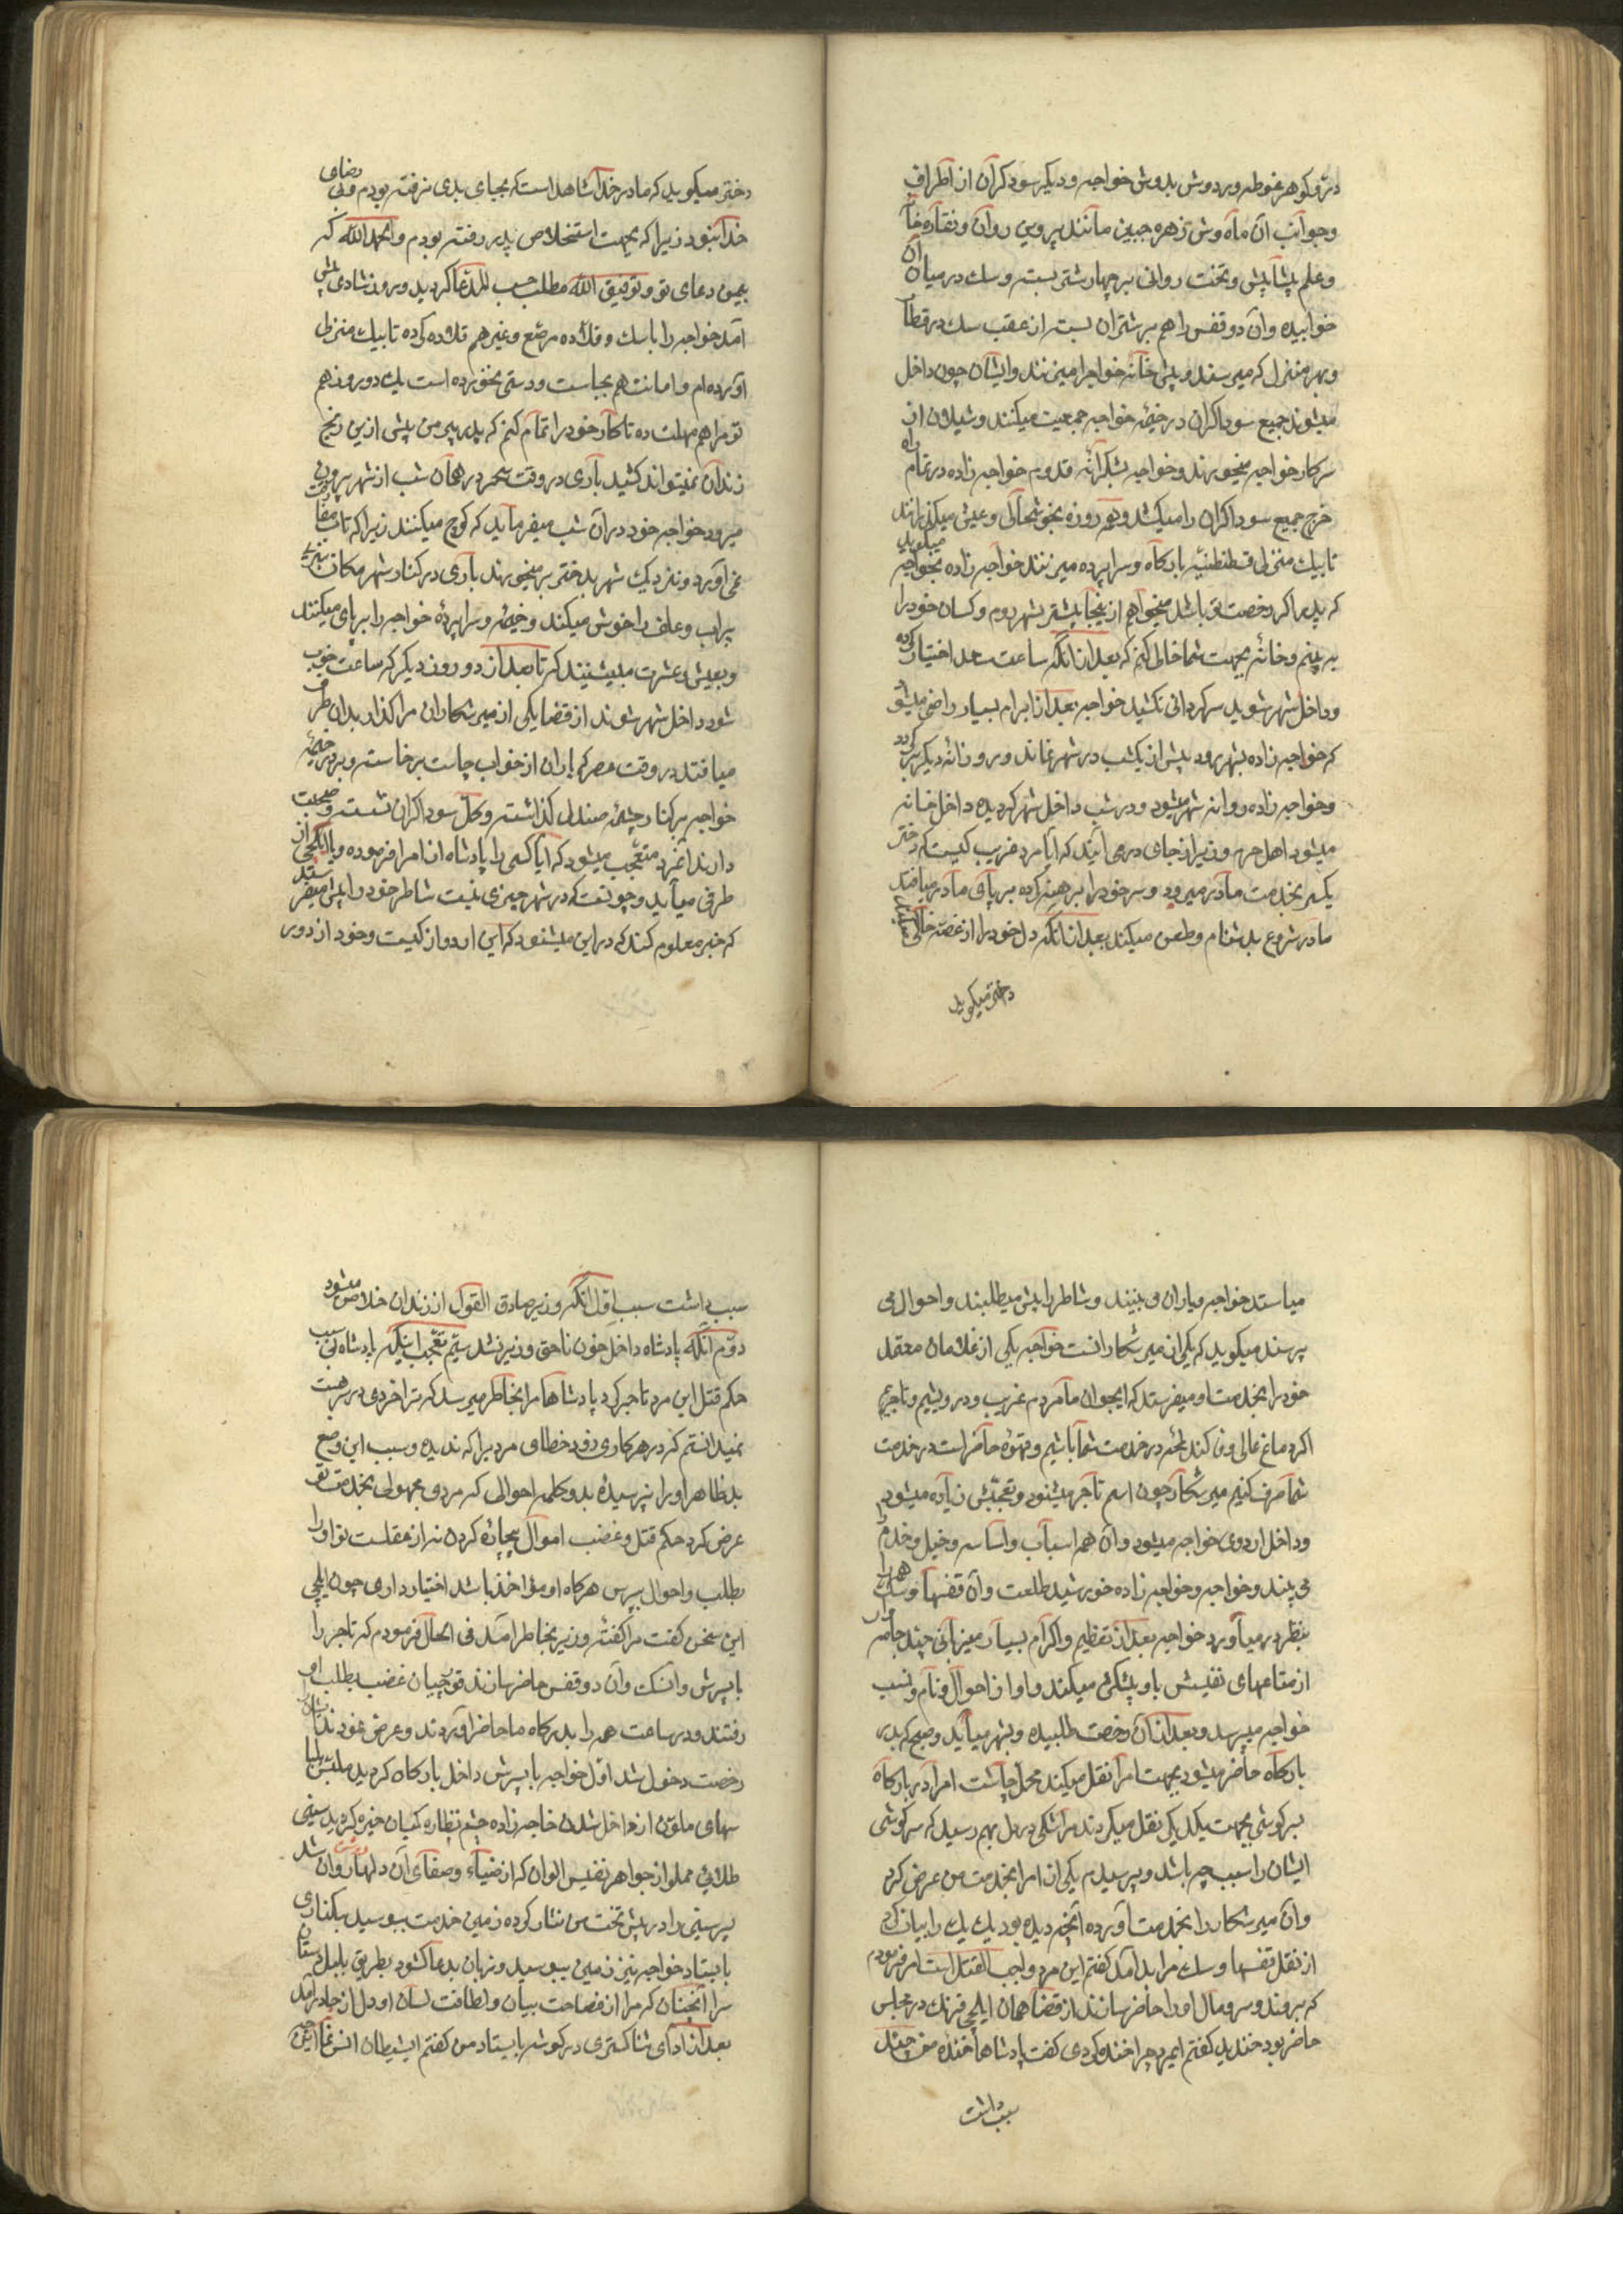 در و کوهر غوطه ور دوش بدوش خواجه و دیکر سوداکران از اطراف
و جوانب آن ماه وش زهره جبین مانند پروین روان و نقاره خا
و علم پیشاپیش و تخت روانی بر چهار شتر بسته و سک در میان آن
خوابیده و آن دو قفس را هم بر شتران بسته از عقب سک در قطا
و بهر منزل که میرسند و پیش خانه خواجه را میزنند و ایشان چون داخل
میشوند جمیع سوداکران در خیمه خواجه جمعیت میکنند و شیلان از
سرکار خواجه میخورند و خواجه بشکرانه قدوم خواجه زاده در تمام راه
خرج جمیع سوداکران را میکشد و همه روزه بخوشحالی و عیش میکذرانند
تا بیک منزلی قسطنطنیه بارکاه و سراپرده میزنند خواجه زاده بخواجه میکوید
که پدر اکر رخصت تو باشد میخواهم از ینجا پیشتر بشهر روم و کسان خود را
به بینم و خانه بجهت شما خالی کنم که بعد از انکه ساعت سعد اختیار کرده
و داخل شهر شوید سرکردانی نکشید خواجه بعد از ابرام بسیار راضی میشو
که خواجه زاده بشهر رود بیش از یکشب در شهر نماند و روزانه دیکر بر کردد
و خواجه زاده روانه شهر میشود و در شب داخل شهر کردیده داخل خانه
میشود اهل حرم وزیر از جای در می آیند که آیا مرد غریب کیست که دختر
یکسر بخدمت مادر میرود و سر خود را برهنه کرده بر پای مادر میافتد
مادر شروع بدشنام و طعن میکند بعد از انکه دل خود را از غصه خالی
دختر میکوید
دختر میکوید که مادر خدا شاهد است که بجای بدی نرفته بودم و بی رضای
خدا نبود زیرا که بجهت استخلاص پدر رفته بودم و الحمد الله که
بیمن دعای تو و توفیق الله مطلب حسب المدعا کردید و روز شادی پیش
آمد خواجه را با سک و قلاده مرصع و غیر هم قلاده کرده تا بیک منزلی
آورده ام و امانت هم بجاست و دستی نخورده است یک دو روز هم
تو مرا هم مهلت ده تا کار خود را تمام کنم که پدر پیر من بیش ازین رنج
زندان نمیتواند کشید باری در وقت سحر در همان شب از شهر بیرون
میرود خواجه خود در آن شب میفرماید که کوچ میکنند زیرا که تاب مفارقت
نمی آورد و نزدیک شهر بدختر بر میخورند باری در کنار شهر مکان سبزی
پر آب و علف را خوش میکنند و خیمه و سراپرده خواجه را برپای میکنند
و بعیش و عشرت مینشینند که تا بعد از دو روز دیکر که ساعت خوب
شود داخل شهر شوند از قضا یکی از میر شکاران مرا کذار بدان طرف
میافتد در وقت عصر که یاران از خواب چاست برخاسته و بر در خیمه
خواجه بر کنار چشمه صندلی کذاشته و کل سوداکران نشسته و صحبت
دارند آنمرد متعجب میشود که آیا کسی را پادشاه از امرا فرموده و یا ایلچی از
طرفی میآید و چونست که در شهر خبری نیست شاطر خود را پیش میفرستد
که خبر معلوم کند که در این میشنود که این اردو از کیست و خود از دور
میاستد خواجه و یاران می بینند و شاطر را پیش میطلبند و احوال می
پرسند میکوید که یکی از میر شکارانست خواجه یکی از غلامان معتمد
خود را بخدمت او میفرستد که ایجوان ما مردم غریب و درویشیم و تاجریم
اکر دماغ عالی وفا کند لمحه در خدمت شما باشیم و قهوه حاضر است در خدمت
شما صرف کنیم میر شکار چون اسم تاجر میشنود و تعجبش زیاده میشود
و داخل اردوی خواجه میشود و آن همه اسباب و اساسه و خیل و خدم را
می بیند و خواجه و خواجه زاده خورشید طلعت و آن قفسها و سک همه را
بنظر در میآورد خواجه بعد از تعظیم و اکرام بسیار میزبانی چند جامه
از متاعهای نفیسش باو پیشکش میکند و او از احوال و نام و نسب
خواجه میپرسد و بعد از آن رخصت طلبیده و بشهر میآید و صبح که بدر
بارکاه حاضر میشود بجهت امرا نقل میکند محل چاشت امرا در بارکاه
بسرکوشی بجهت یکدیکر نقل میکردند مرا شکی در دل بهم رسید که سرکوشی
ایشان را سبب چه باشد و پرسیدم یکی از امرا بخدمت من عرض کرد
و آن میر شکار را بخدمت آورده آنچه دیده بود یک یک را بیان کرد
از نقل قفسها و سک مرا بد آمد کفتم این مرد واجب القتل است امر فرمودم
که بروند و سر و مال او را حاضر سازند از قضا همان ایلچی فرنک در مجلس
حاضر بود خندید کفتم ایمرد چرا خنده کردی کفت پادشاها خنده من چند
سبب داشت
سبب داشت سبب اول آنکه وزیر صادق القول از زندان خلاص میشود
دوم آنکه پادشاه داخل خون ناحق وزیر نشد سیم تعجب اینکه پادشاه بی سبب
حکم قتل این مرد تاجر کرد پادشاها مرا بخاطر میرسد که ترا خردی در سر هست
نمیدانستم که در هر کاری زود خطای مردیرا که ندیده و سبب این وضع
بد ظاهر او را نپرسیده بدو کلمه احوالی که مردی مجهولی بخدمت تو
عرض کرد حکم قتل و غضب اموال بیچاره کردن نه از عقلست تو او را
بطلب و احوال بپرس هرکاه او مؤاخذ باشد اختیار داری چون ایلچی
این سخن کفت مرا کفته وزیر بخاطر آمد فی الحال فرمودم که تاجر را
با پسرش و آن سک و آن دو قفس حاضر سازند قورچیان غضب بطلب او
رفتند و در ساعت همه را بدرکاه ما حاضر آوردند و عرض نمودند
رخصت دخول شد اول خواجه با پسرش داخل بارکاه کردید ملبس بلبا
سهای ملون از داخل شدن خاجه زاده چشم نظاره کیان خیره کردید سینی
طلائی مملو از جواهر نفیس الوان که از ضیاء و صفای آن دلها روشن شد
پسر سینی را در پیش تخت من نثار کرده زمین خدمت ببوسید بکناری
بایستاد خواجه نیز زمین ببوسید و زبان بدعا کشود بطریق بلبل دستان
سرا آنچنان که مرا از فصاحت بیان و لطافت لسان او دل از جا در آمد
بعد از ادای ثنا کستری در کوشه بایستاد من کفتم ایشیطان انس نما این